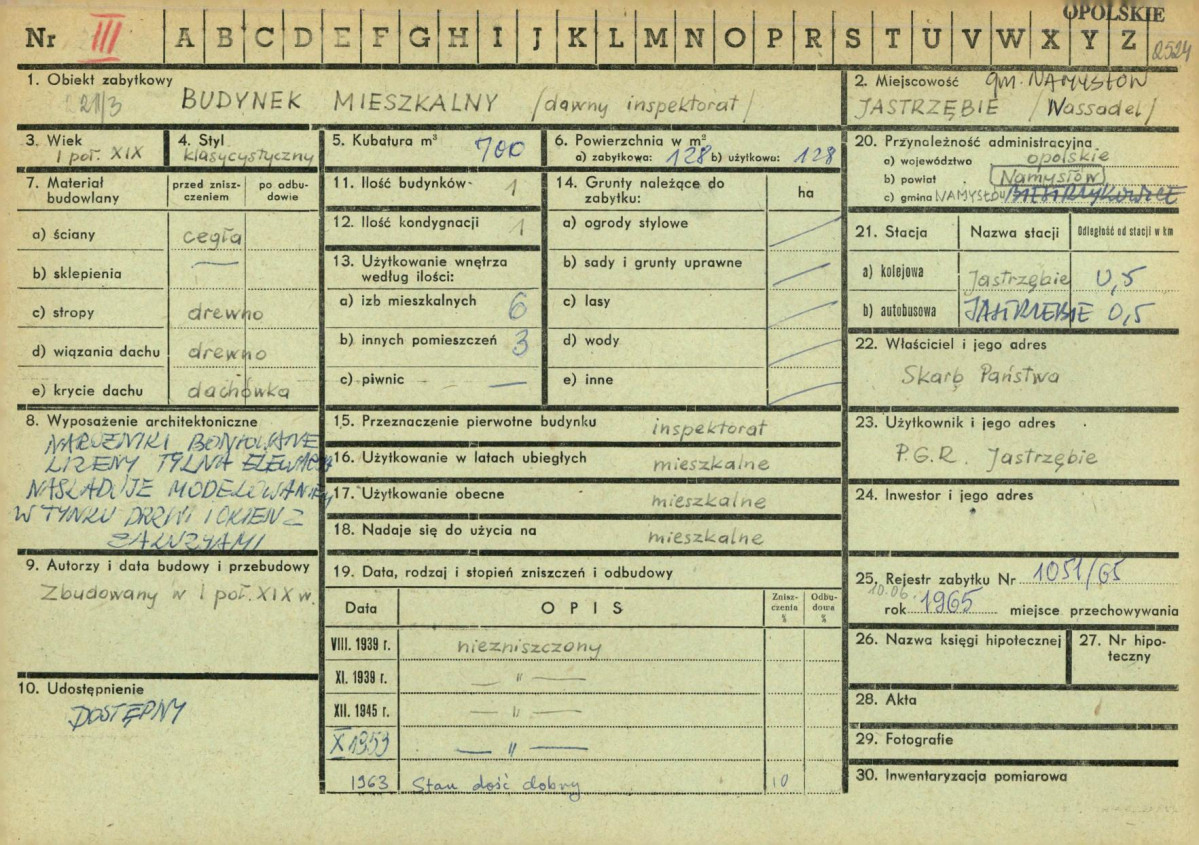 OPOLSKIE
Nr III A B C D E F G H I J K L M N O P R S T U V W X Y Z
2524
1. Obiekt zabytkowy
21/3 BUDYNEK MIESZKALNY /dawny inspektorat/
2. Miejscowość gm. NAMYSŁÓW
JASTRZĘBIE /Nassadel/
3. Wiek
I poł. XIX
4. Styl
klasycystyczny
5. Kubatura m³
700
6. Powierzchnia w m²
a) zabytkowa: 128 b) użytkowa: 128
7. Materiał budowlany
przed zniszczeniem
po odbudowie
a) ściany cegła
b) sklepienia —
c) stropy drewno
d) wiązania dachu drewno
e) krycie dachu dachówka
8. Wyposażenie architektoniczne
NAROŻNIKI BONIOWANE
LIZENY TYLNA ELEWACJA
NAŚLADUJE MODELOWANIEM
W TYNKU DRZWI I OKIEN Z
ŻALUZJAMI
9. Autorzy i data budowy i przebudowy
Zbudowany w I poł. XIX w.
10. Udostępnienie
DOSTĘPNY
11. Ilość budynków 1
12. Ilość kondygnacji 1
13. Użytkowanie wnętrza
według ilości:
a) izb mieszkalnych 6
b) innych pomieszczeń 3
c) piwnic —
14. Grunty należące do
zabytku:
ha
a) ogrody stylowe
b) sady i grunty uprawne
c) lasy
d) wody
e) inne
15. Przeznaczenie pierwotne budynku inspektorat
16. Użytkowanie w latach ubiegłych mieszkalne
17. Użytkowanie obecne mieszkalne
18. Nadaje się do użycia na mieszkalne
19. Data, rodzaj i stopień zniszczeń i odbudowy
Data OPIS Zniszczenia % Odbudowa %
VIII. 1939 r. niezniszczony
XI. 1939 r. — " —
XII. 1945 r. — " —
X 1953 — " —
1963 Stan dość dobry 10
20. Przynależność administracyjna
a) województwo opolskie
b) powiat Namysłów
c) gmina NAMYSŁÓW
21. Stacja Nazwa stacji Odległość od stacji w km
a) kolejowa Jastrzębie 0,5
b) autobusowa JASTRZĘBIE 0,5
22. Właściciel i jego adres
Skarb Państwa
23. Użytkownik i jego adres
P.G.R. Jastrzębie
24. Inwestor i jego adres
25. Rejestr zabytku Nr 1051/65
10.06.
rok 1965 miejsce przechowywania
26. Nazwa księgi hipotecznej
27. Nr hipoteczny
28. Akta
29. Fotografie
30. Inwentaryzacja pomiarowa